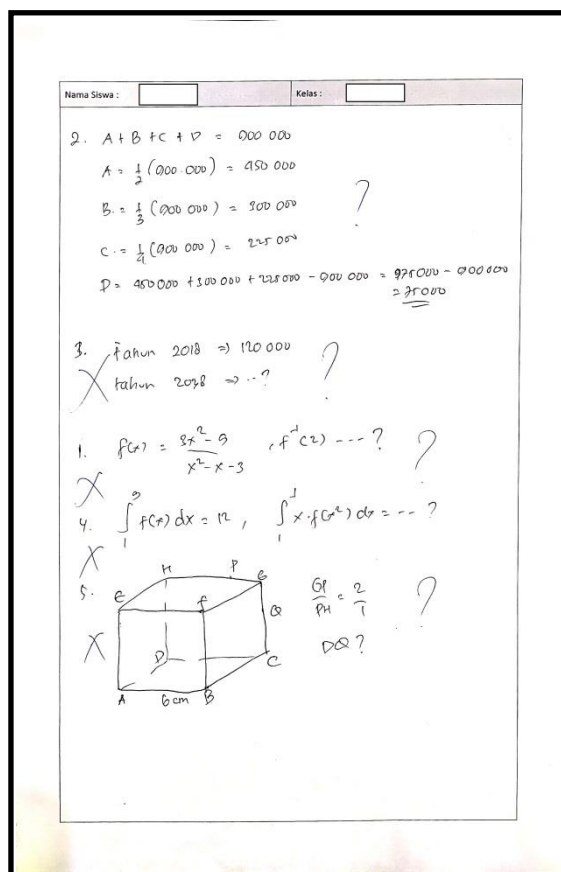 Nama Siswa :
Kelas :
2. A + B + C + D = 900 000
A = 1/2 (900.000) = 450 000
B = 1/3 (900 000) = 300 000
?
C = 1/4 (900 000) = 225 000
D = 450000 + 300 000 + 225000 - 900 000 = 975000 - 900000
= 75000
3. Tahun 2018 => 120 000
?
X
tahun 2038 => ..?
1. f(x) = 3x² - 9 / x² - x - 3 , f⁻¹(2) ---?
?
X
4. ∫₁⁹ f(x) dx = 12 , ∫₁⁻¹ x·f(x²) dx = -- ?
X
5.
H P G
E F
GP/PH = 2/1
?
Q
X
DQ?
D C
A 6 cm B